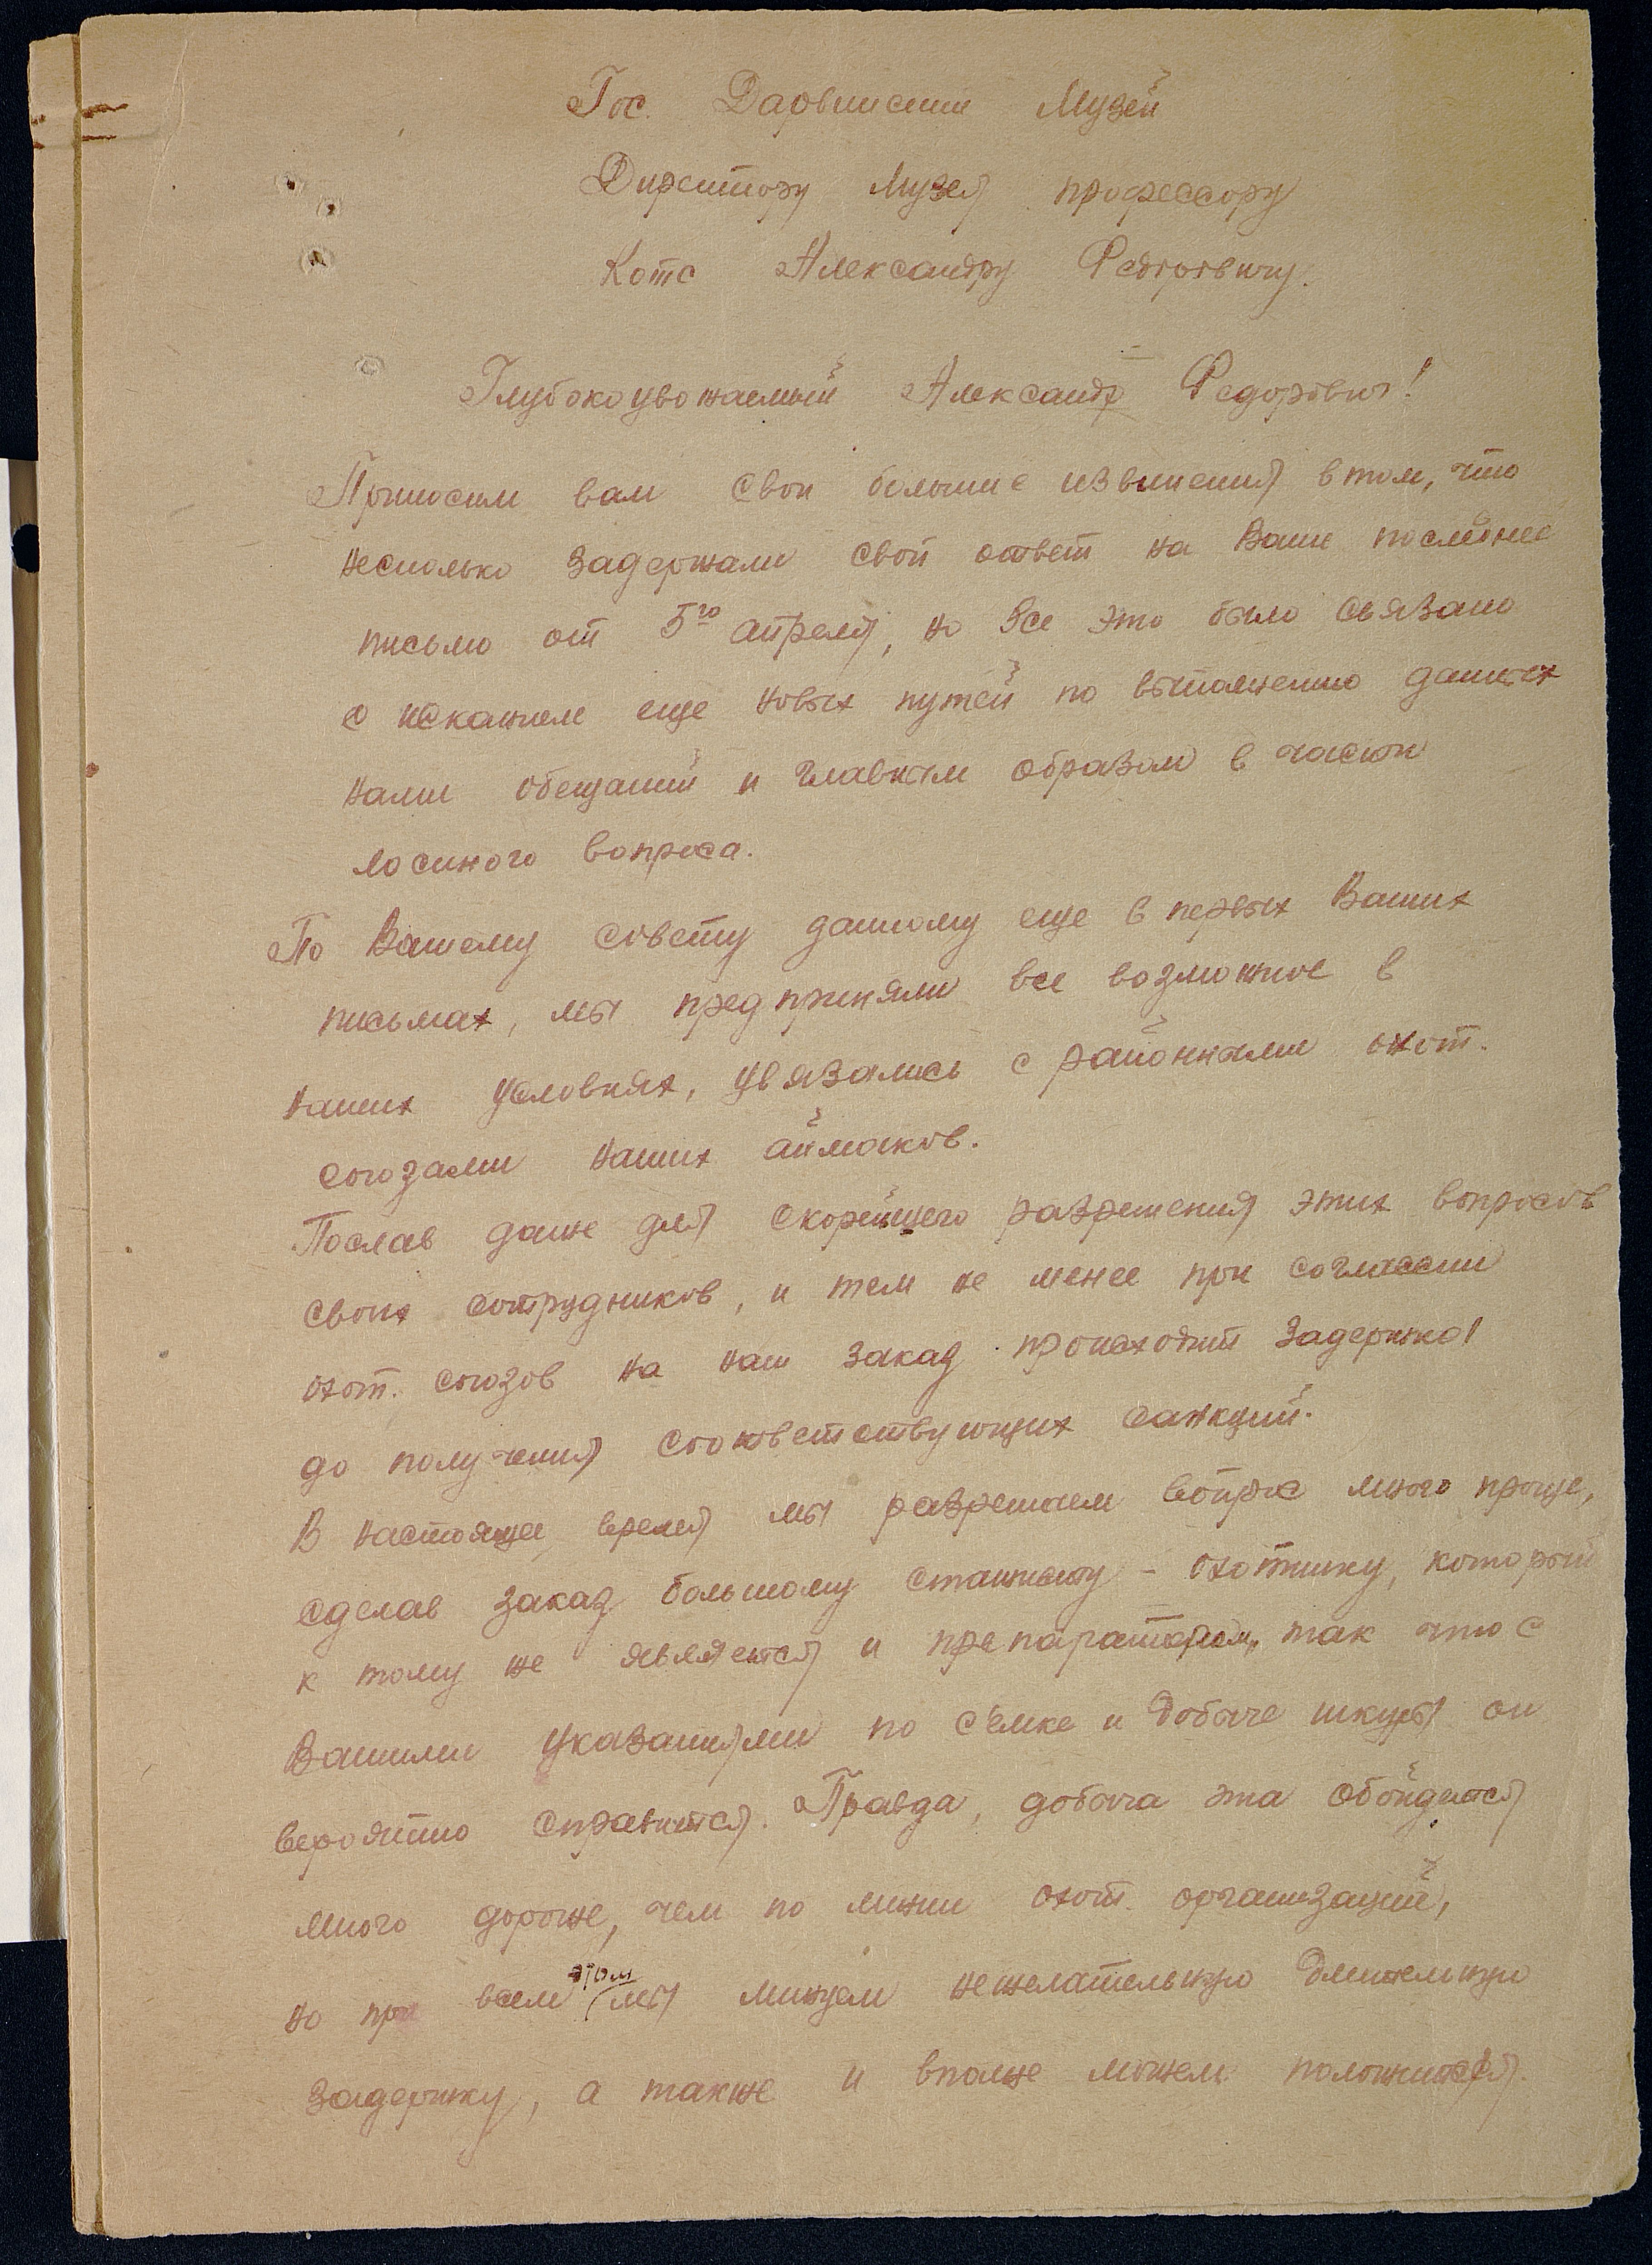 Гос. Дарвинский Музей
Директору Музея профессору
Котс Александру Федоровичу.
Глубокоуважаемый Александр Федорович!
Приносим вам свои большие извинения в том, что
несколько задержали свой ответ на Ваше последнее
письмо от 5го апреля, но все это было связано
с исканием еще новых путей по выполнению данных
нами обещаний и главным образом в части
лосиного вопроса.
По Вашему совету данному еще в первых Ваших
письмах, мы предприняли все возможное в
наших условиях, увязались с районными охот.
союзами наших аймаков.
Послав даже для скорейшего разрешения этих вопросов
своих сотрудников, и тем не менее при согласии
охот. союзов на наш заказ происходит задержка
до получения соответствующих санкций.
В настоящее время мы разрешаем вопрос много проще,
сделав заказ большому специалисту - охотнику, который
к тому же является и препаратором, так что с
Вашими указаниями по с'емке и добыче шкуры он
вероятно справится. Правда, добыча эта обойдется
много дороже, чем по линии охот. организаций,
но при всем этом мы минуем нежелательную длительную
задержку, а также и вполне можем положиться.